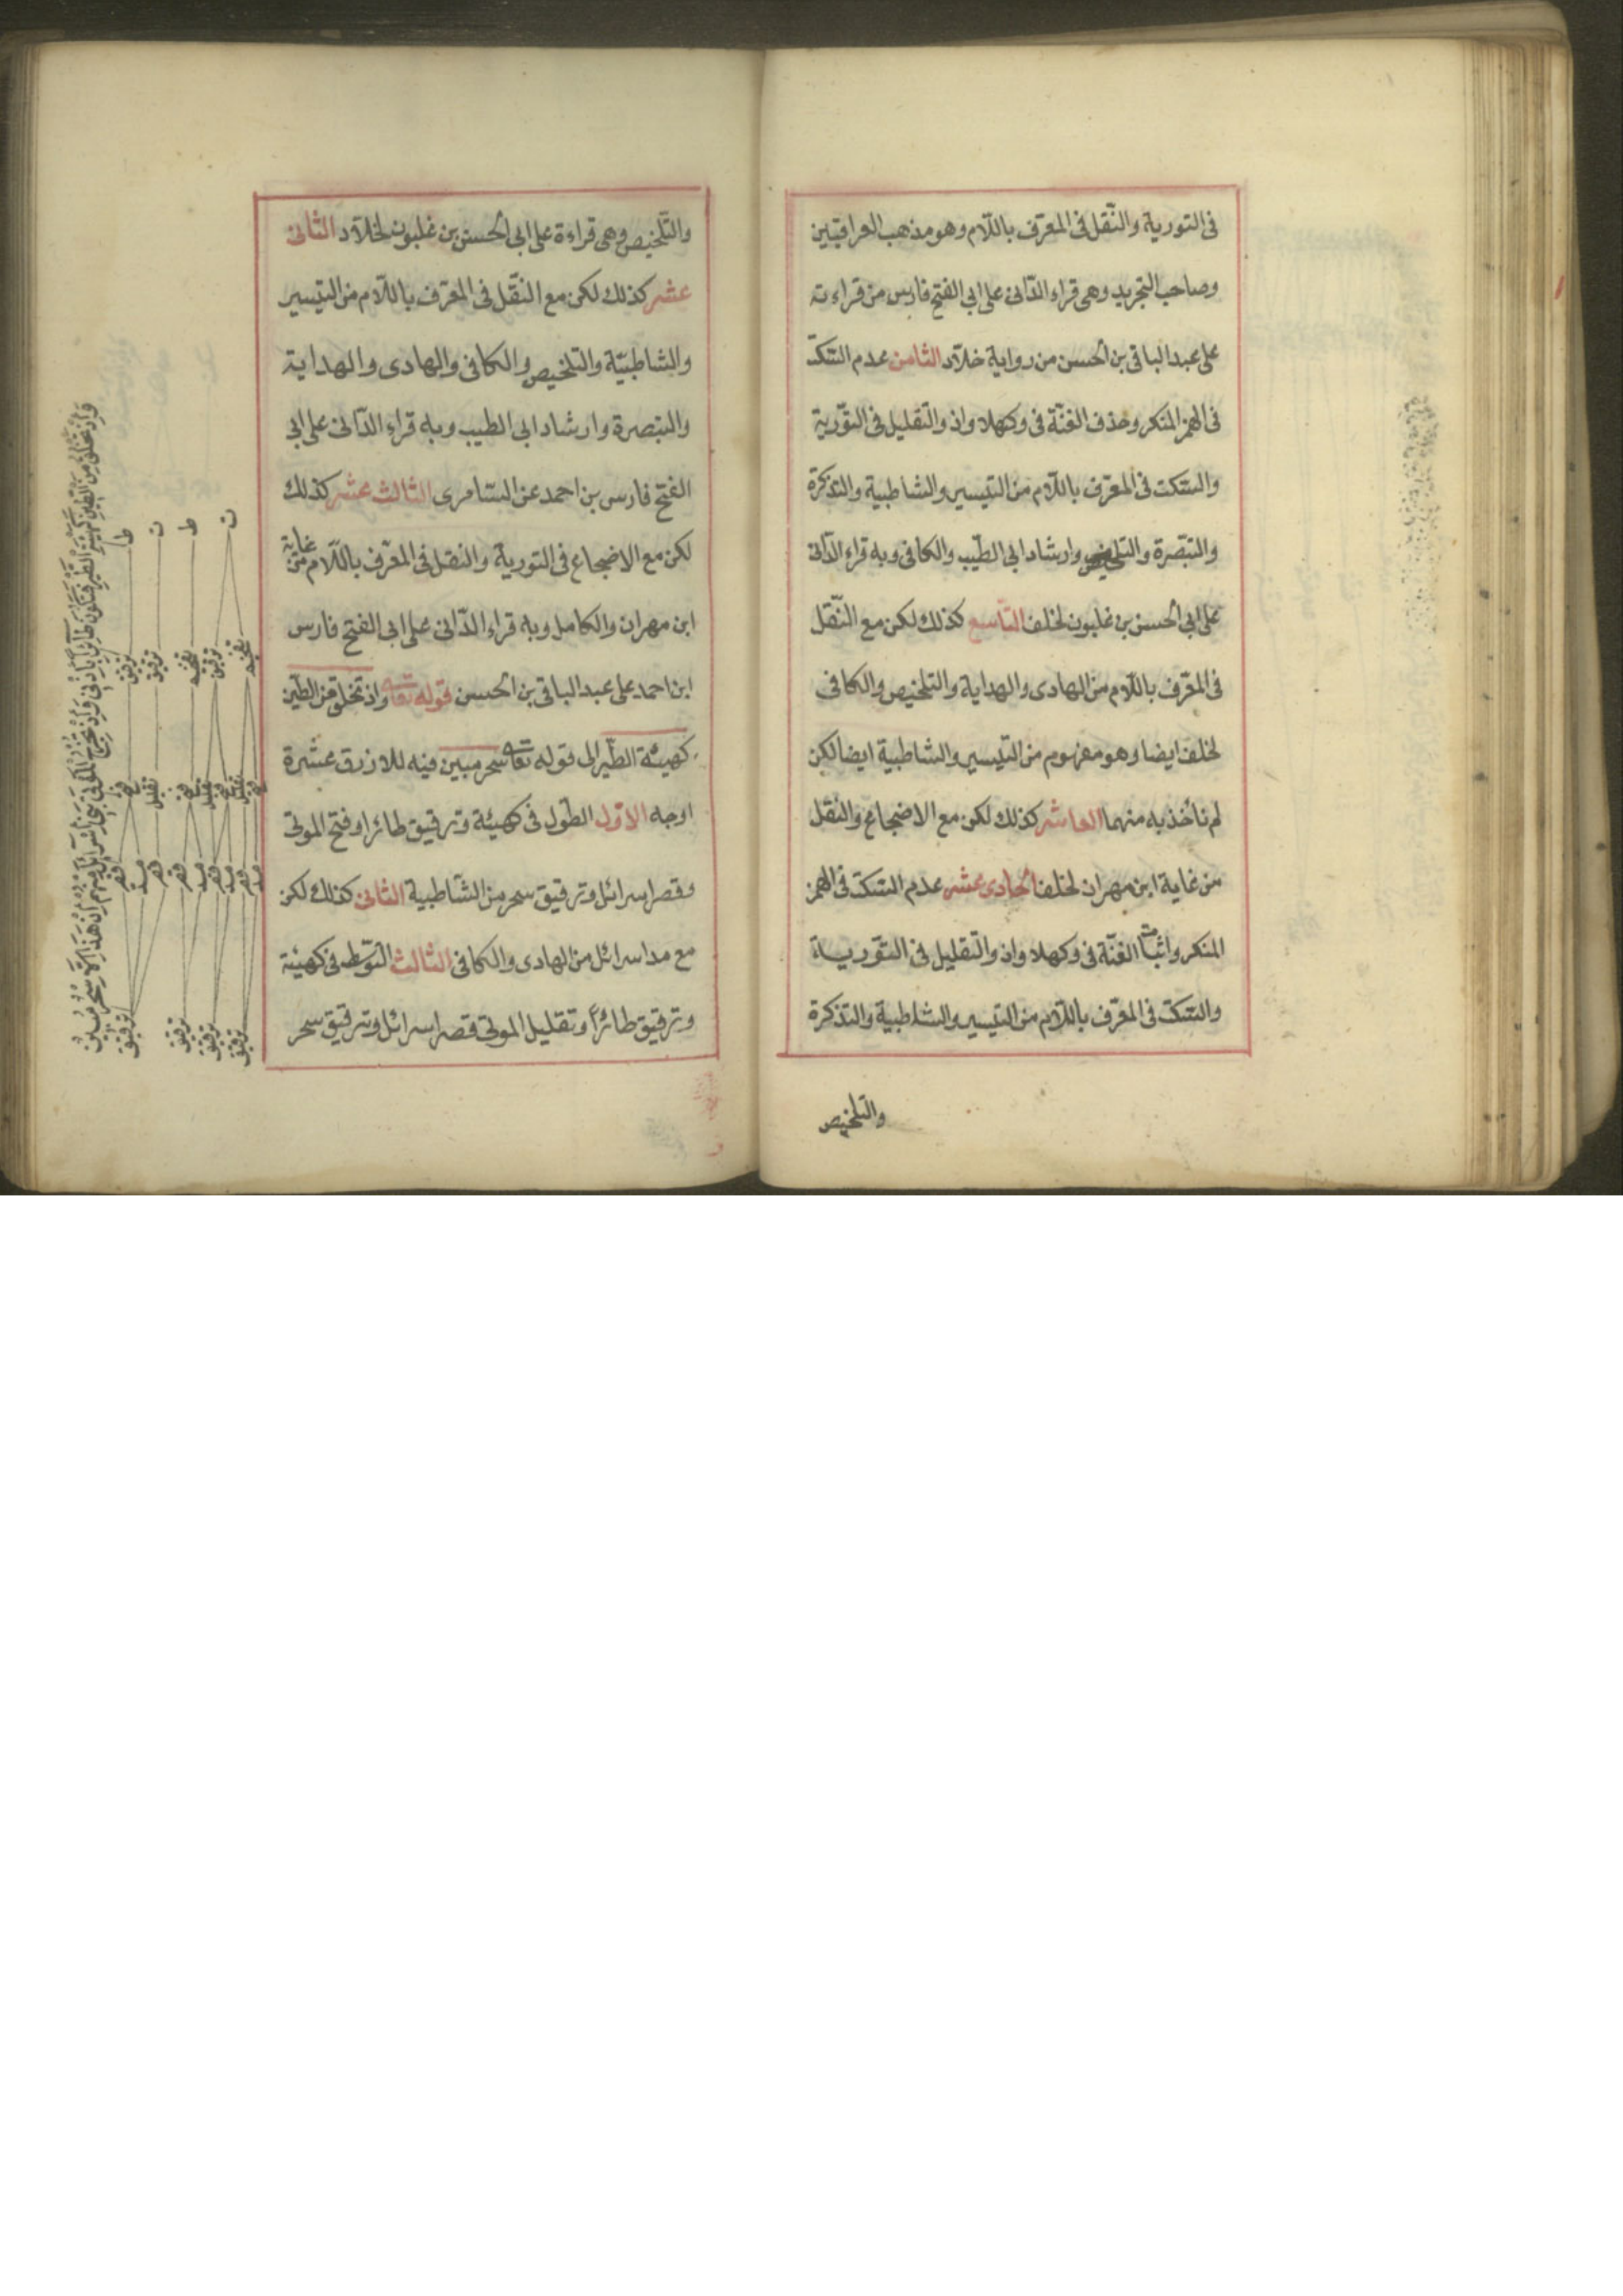 فى التورية والنّقل فى المعرّف باللّام وهو مذهب العراقيين
وصاحب التجريد وهى قراء الدّانى على ابى الفتح فارس من قراءته
على عبد الباقى بن الحسن من رواية خلّاد الثامن عدم السّكت
فى الهمز المنكر وحذف الغنّة فى وكهلا واذ والتّقليل فى التّورية
والسّكت فى المعرّف باللّام من التيسير والشاطبية والتذكرة
والتبصرة والتلخيص وارشاد ابى الطّيب والكافى وبه قراء الدّانى
على ابى الحسن بن غلبون لخلف التاسع كذلك لكن مع النّقل
فى المعرّف باللّام من الهادى والهداية والتلخيص والكافى
لخلف ايضا وهو مفهوم من التيسير والشاطبية ايضا لكن
لم نأخذ به منهما العاشر كذلك لكن مع الاضجاع والنقل
من غاية ابن مهران لخلف الحادى عشر عدم السّكت فى الهمز
المنكر واثبات الغنّة فى وكهلا واذ والتّقليل فى التّورياة
والسّكت فى المعرّف باللّام من التيسير والشاطبية والتذكرة
والتلخيص
والتّلخيص وهى قراءة على ابى الحسن بن غلبون لخلّاد الثانى
عشر كذلك لكن مع النّقل فى المعرّف باللّام من التيسير
والشاطبيّة والتلخيص والكافى والهادى والهداية
والتبصرة وارشاد ابى الطيب وبه قراء الدّانى على ابى
الفتح فارس بن احمد عن السّامرى الثالث عشر كذلك
لكن مع الاضجاع فى التورية والنقل فى المعرّف باللّام من غاية
ابن مهران والكامل وبه قراء الدّانى على ابى الفتح فارس
ابن احمد على عبد الباقى بن الحسن قوله تعا واذ تخلق من الطّين
كهيئة الطّير الى قوله تعا سحر مبين فيه للازرق عشرة
اوجه الاوّل الطّول فى كهيئة وترقيق طائرا وفتح الموتى
وقصر اسرائل وترقيق سحر من الشّاطبية الثانى كذلك لكن
مع مد اسرائل من الهادى والكافى الثالث التّوسّط فى كهيئة
وترقيق طائراً وتقليل الموتى قصر اسرائل وترقيق سحر
وَاِذْ تَخْلُقُ مِنَ الطِّينِ كَهَيْئَةِ الطَّيْرِ فَتَكُونُ طَائِرًا بِاِذْنِى وَاِذْ تُخْرِجُ الْمَوْتَى بَنِى اِسْرَائِلَ اِنْ هَذَا اِلَّا سِحْرٌ مُبِينٌ
ط ت ط ت
ترقيق ترقيق
ترقيق ترقيق ترقيق ترقيق